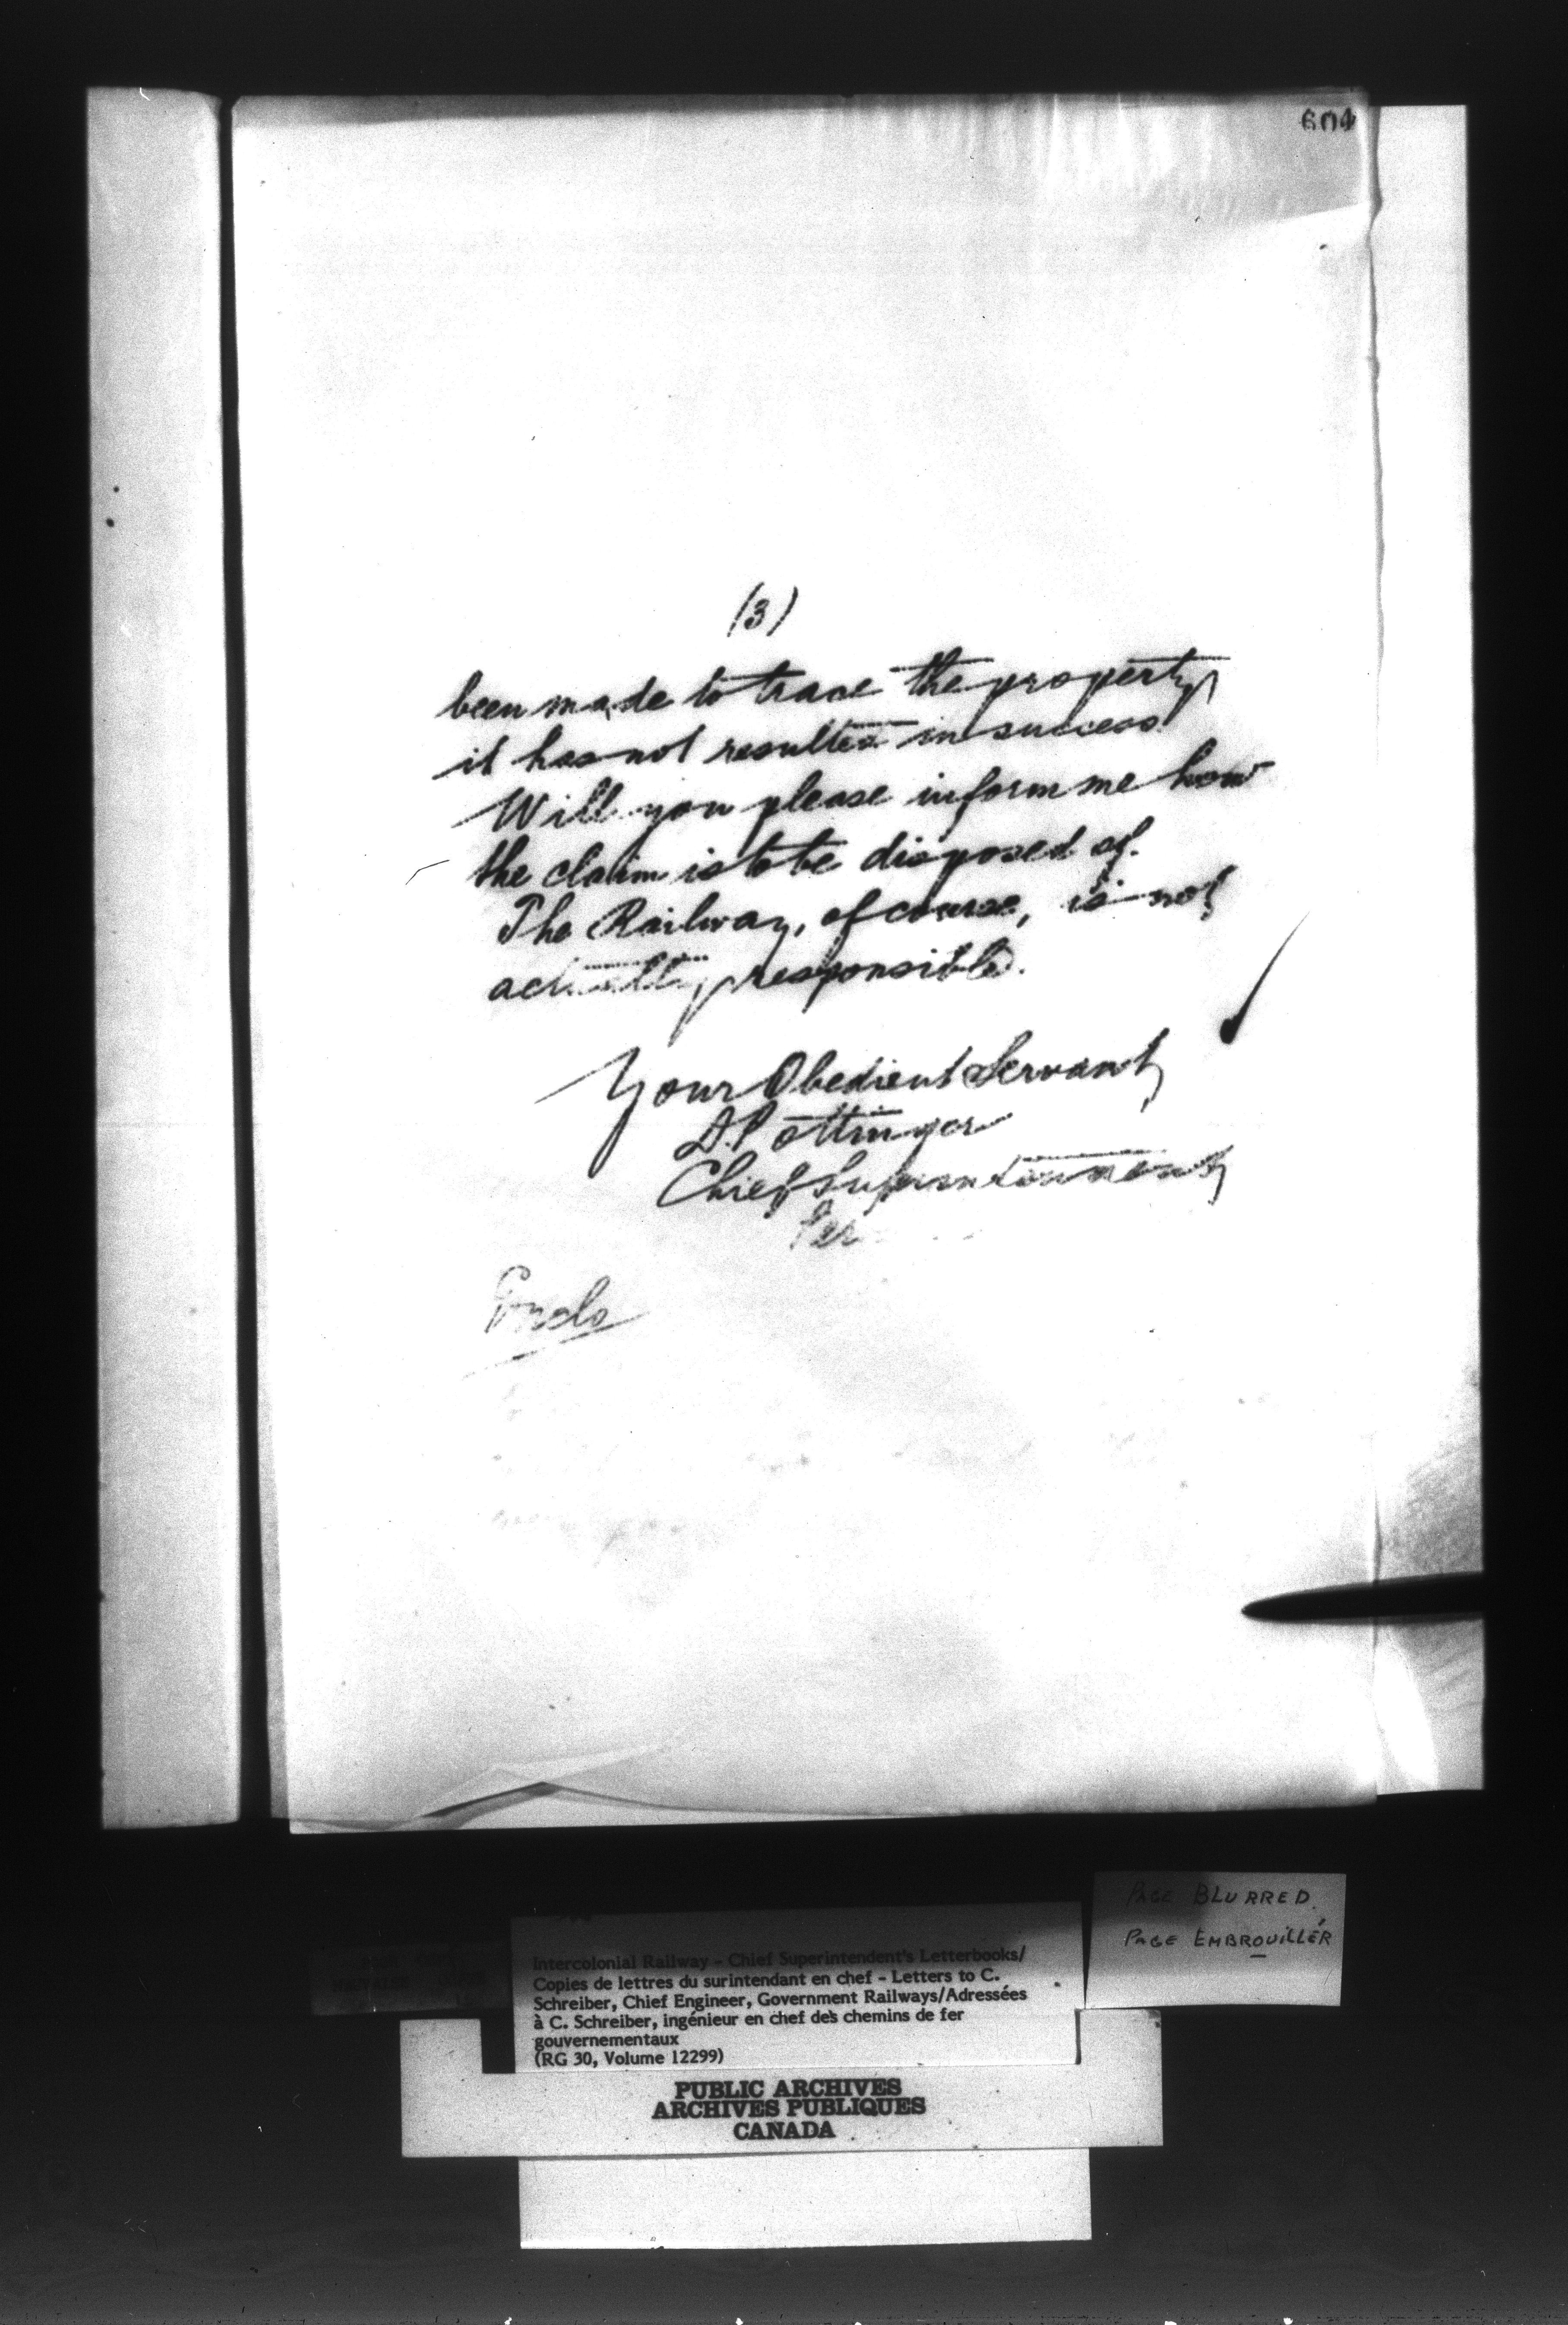 604
(3)
been made to trace the property,
it has not resulted in success.
Will you please inform me how
the claim is to be disposed of.
The Railway, of course, is not
actually responsible.
Your Obedient Servant,
D. Pottinger
Chief Superintendent,
Per
Encls
PAGE BLURRED
PAGE EMBROUILLÉR
Intercolonial Railway - Chief Superintendent's Letterbooks/
Copies de lettres du surintendant en chef - Letters to C.
Schreiber, Chief Engineer, Government Railways/Adressées
à C. Schreiber, ingénieur en chef des chemins de fer
gouvernementaux
(RG 30, Volume 12299)
PUBLIC ARCHIVES
ARCHIVES PUBLIQUES
CANADA